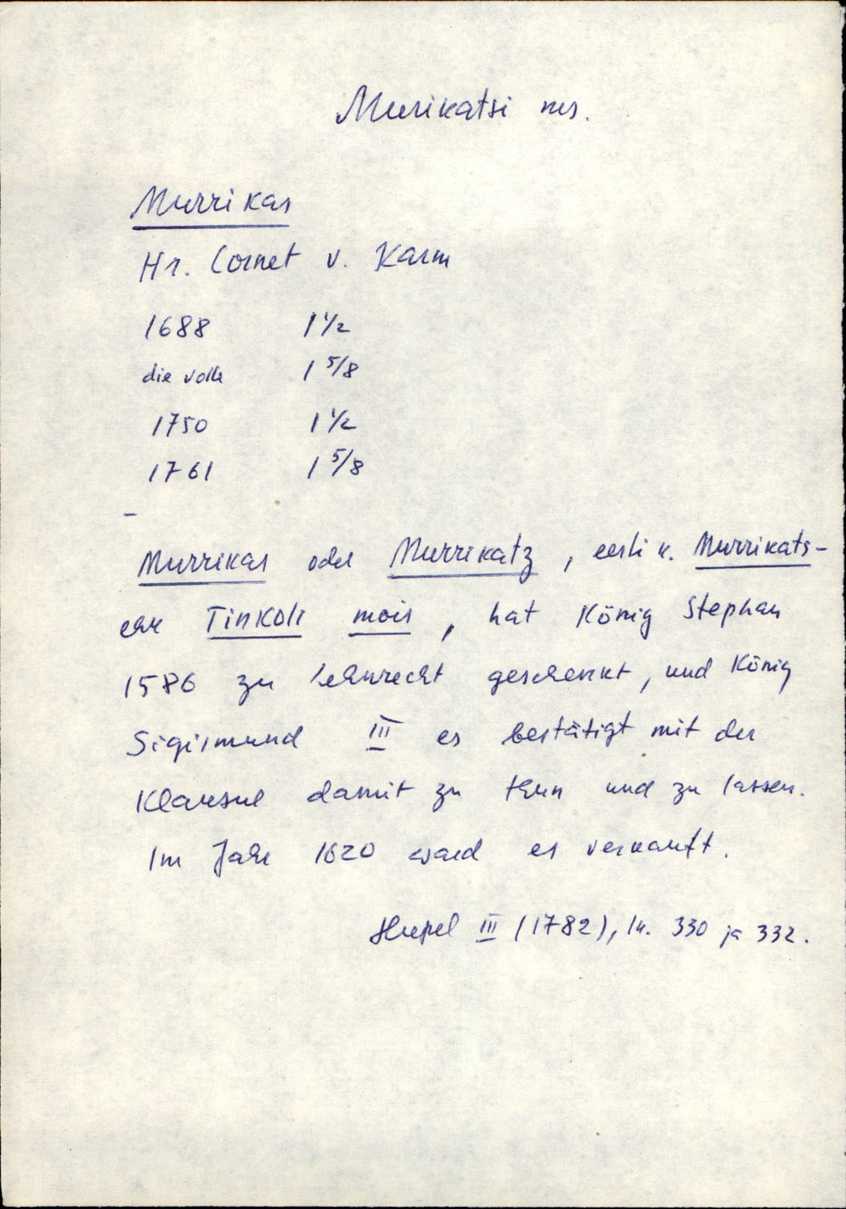 Murikatsi ms.
Murrikas
Hr. Cornet v. Karm
1688 1 1/2
die volle 1 5/8
1750 1 1/2
1761 1 5/8
–
Murrikas oder Murrikatz, eesti k. Murrikats-
ehk Tinkoli mois, hat König Stephan
1586 zu Lehnrecht geschenkt, und König
Sigismund III es bestätigt mit der
Klausul damit zu thun und zu lassen.
Im Jahr 1620 ward es verkauft.
Hupel III (1782), lk. 330 ja 332.